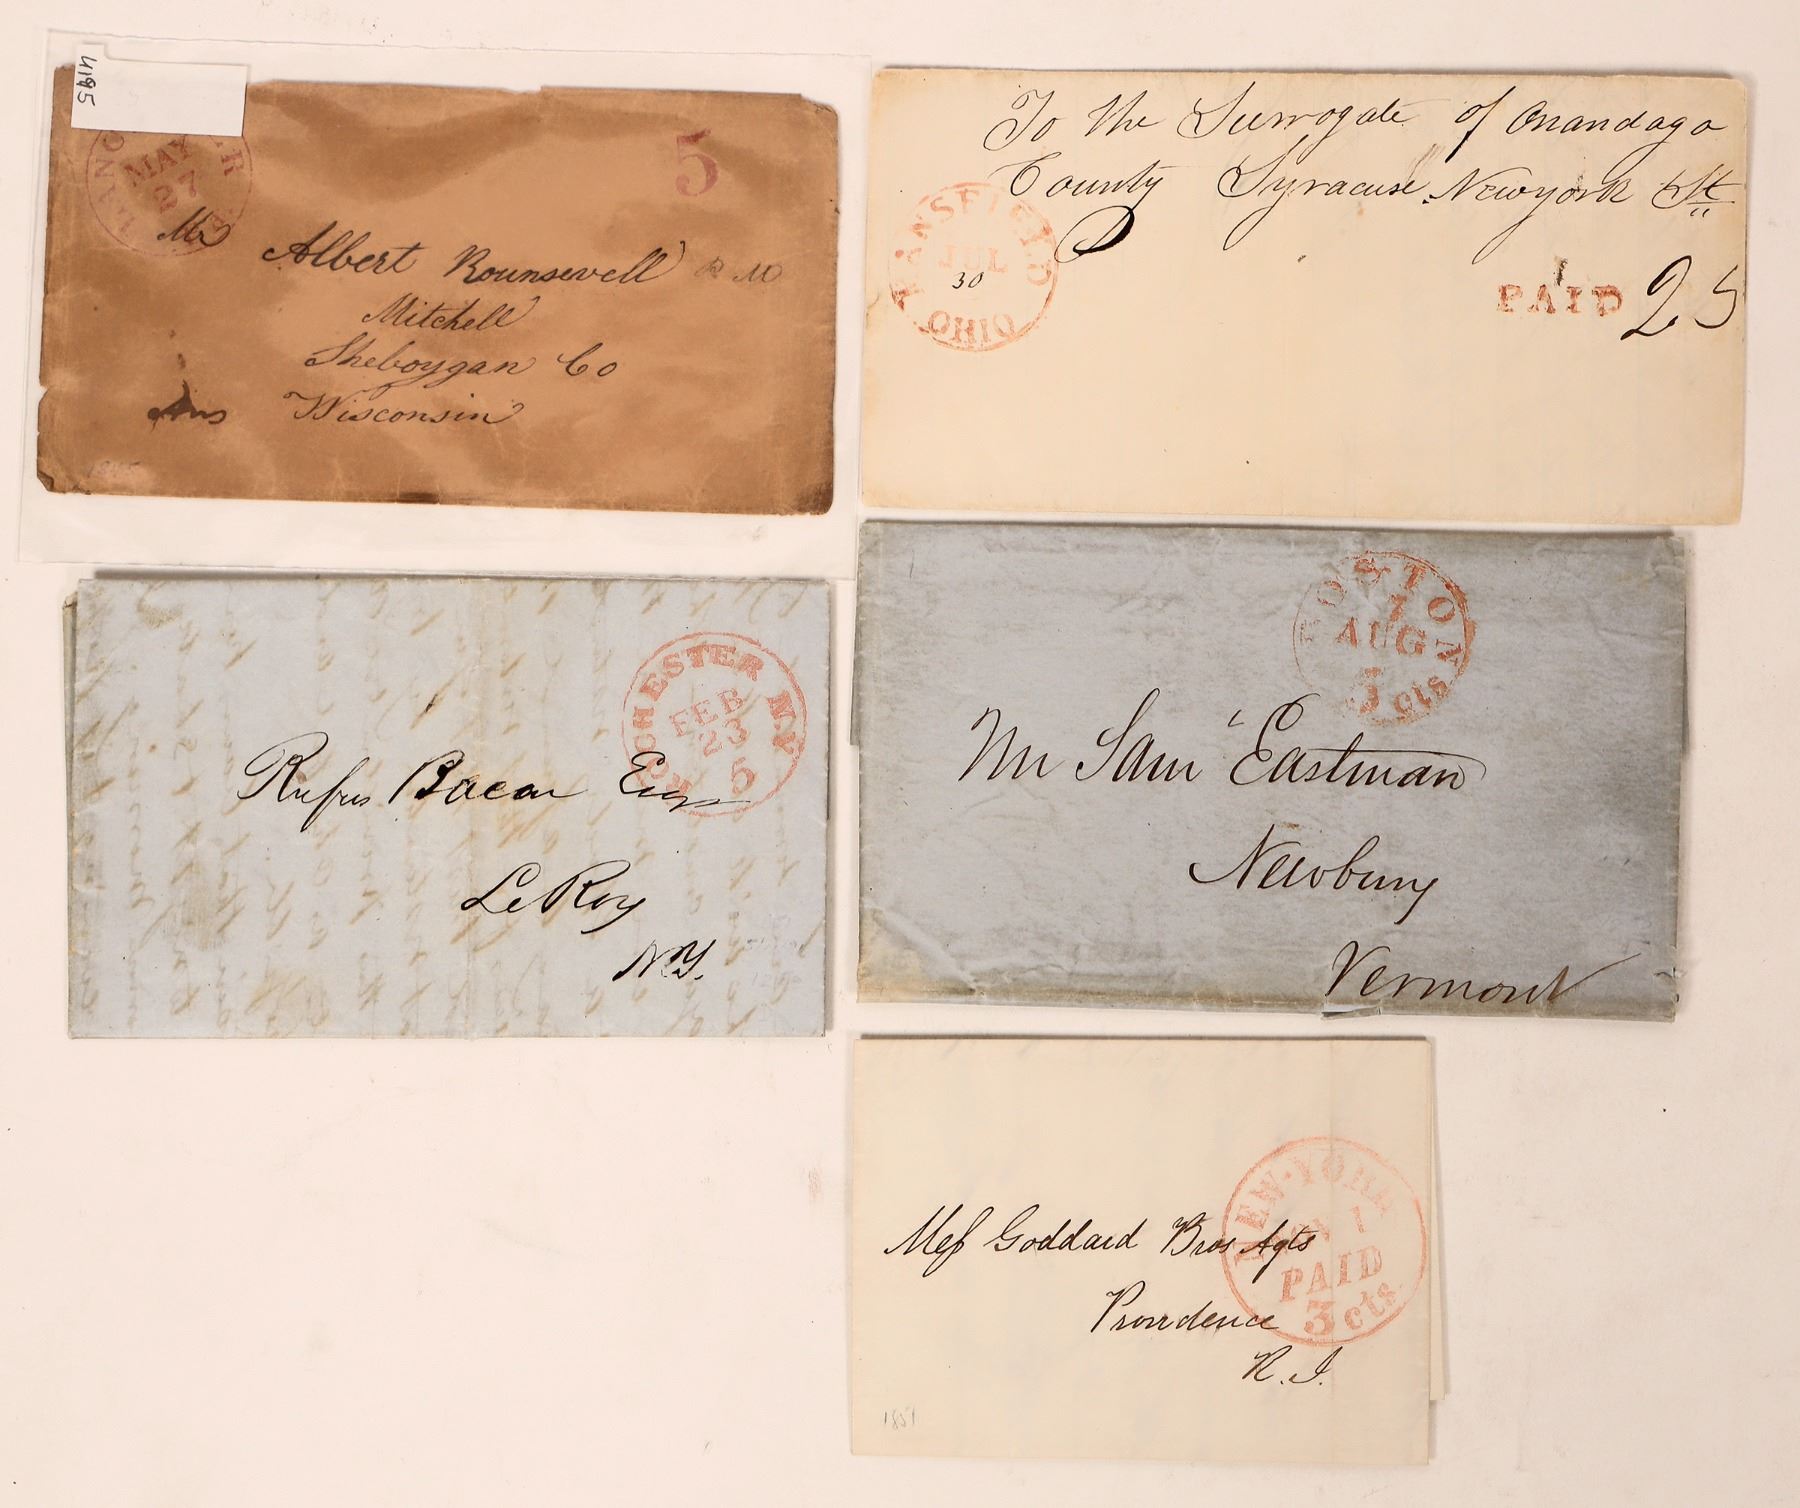 4195
MAY
27
5
Mr
Albert Rounsevell P M
Mitchell
Sheboygan Co
Ans Wisconsin
To the Surrogate of Onandago
County Syracuse Newyork St
MANSFIELD
JUL
30
OHIO
PAID 25
ROCHESTER N.Y
FEB
23
5
Rufus Bacon Esqr
Le Roy
N.Y.
BOSTON
7
AUG
5 cts
Mr Saml Eastman
Newbury
Vermont
NEW-YORK
1
PAID
3 cts
Mess Goddard Bros Agts
Providence
R. I.
1851